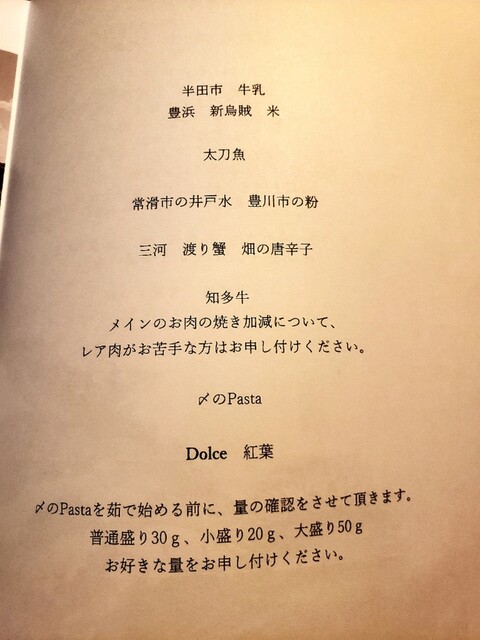 半田市　牛乳
豊浜　新烏賊　米
太刀魚
常滑市の井戸水　豊川市の粉
三河　渡り蟹　畑の唐辛子
知多牛
メインのお肉の焼き加減について、
レア肉がお苦手な方はお申し付けください。
〆のPasta
Dolce　紅葉
〆のPastaを茹で始める前に、量の確認をさせて頂きます。
普通盛り30ｇ、小盛り20ｇ、大盛り50ｇ
お好きな量をお申し付けください。